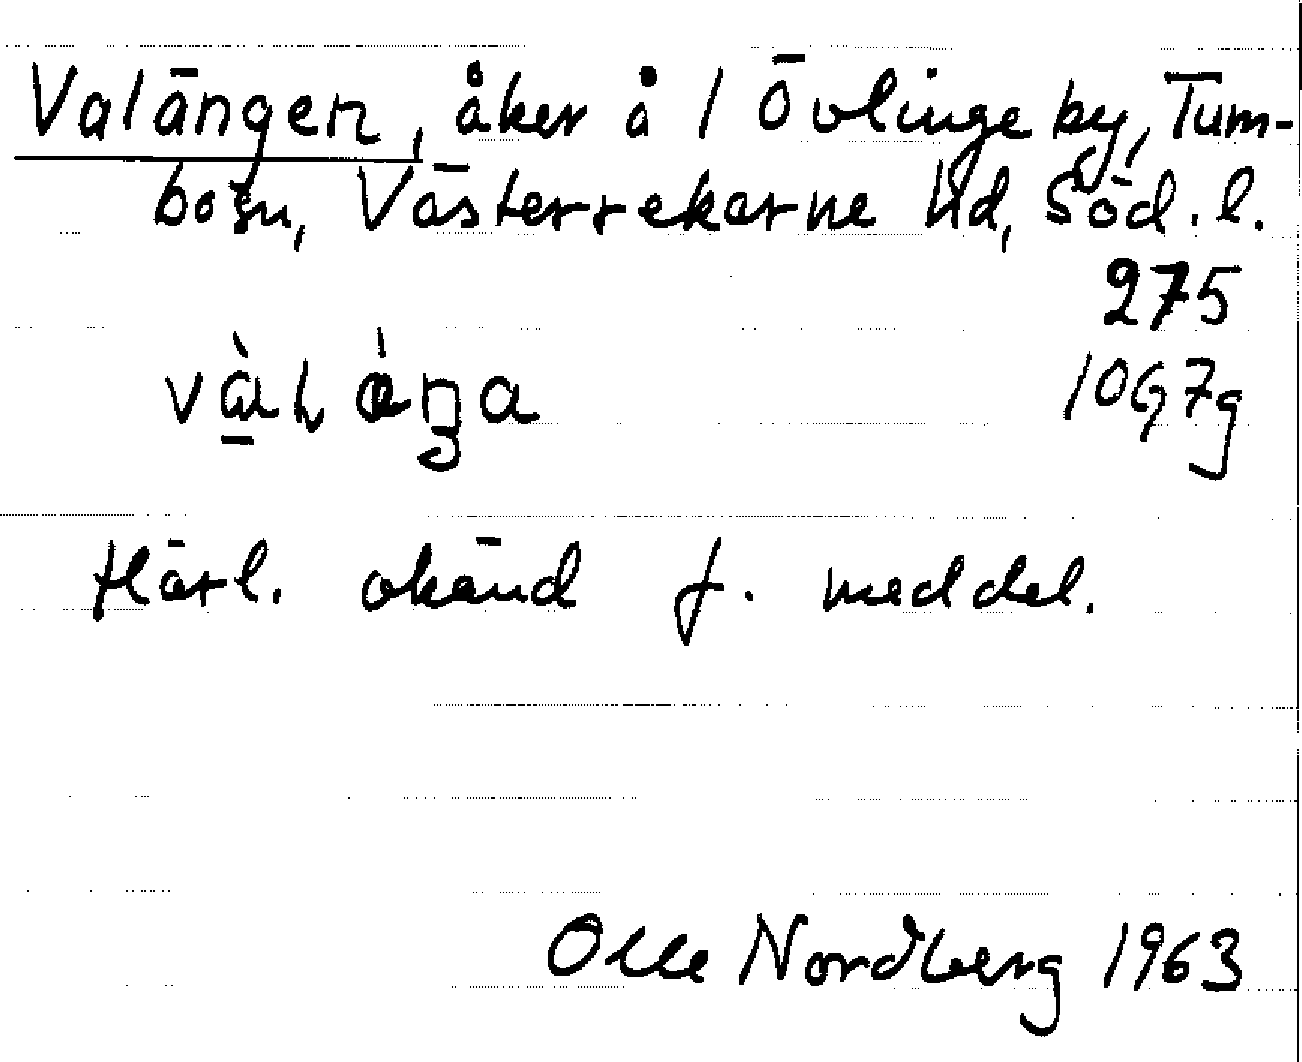 Valängen, åker å 1 Övlinge by, Tum-
bo sn, Västerrekarne hd, Söd. l.
275
10G7g
Härl. okänd f. meddel.
Olle Nordberg 1963